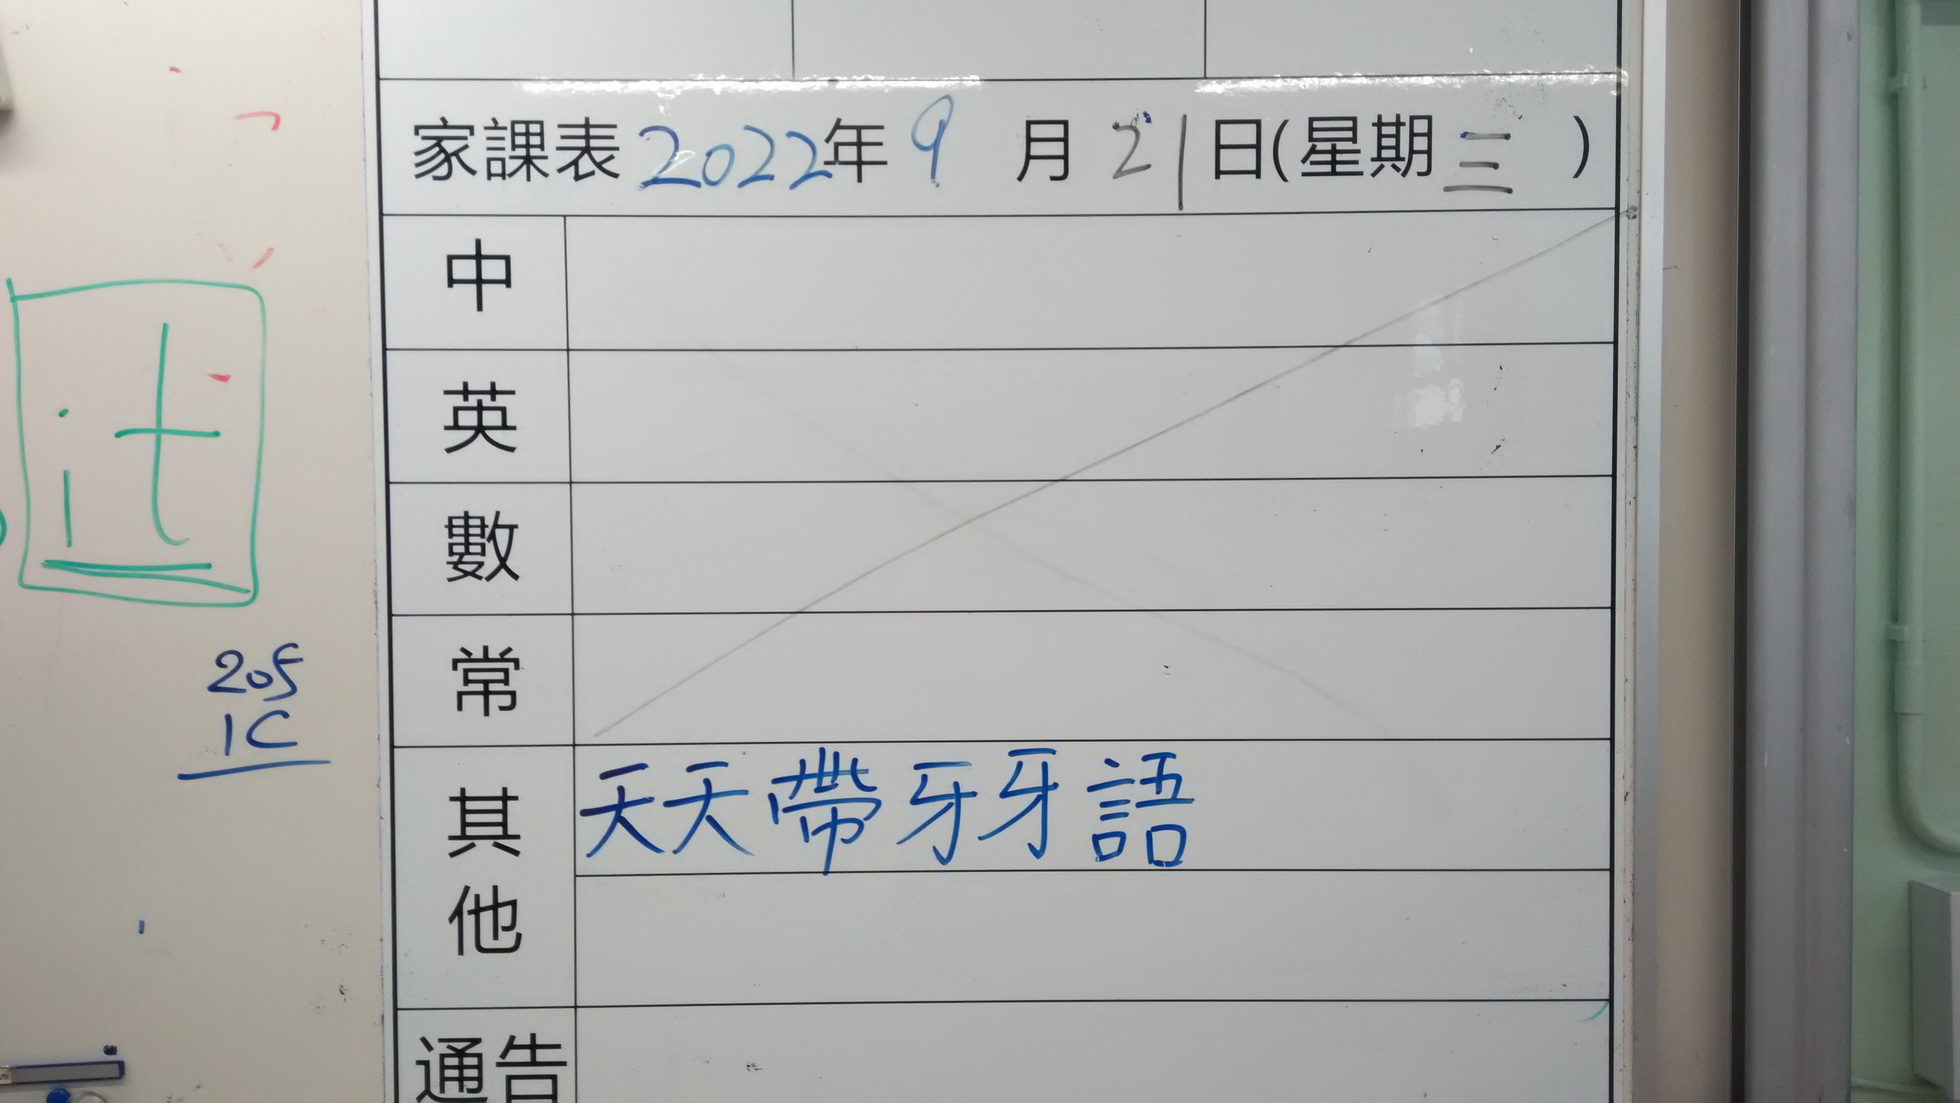 家課表2022年9月21日(星期三)
中
英
數
常
其他
天天帶牙牙語
通告
it
205
1C